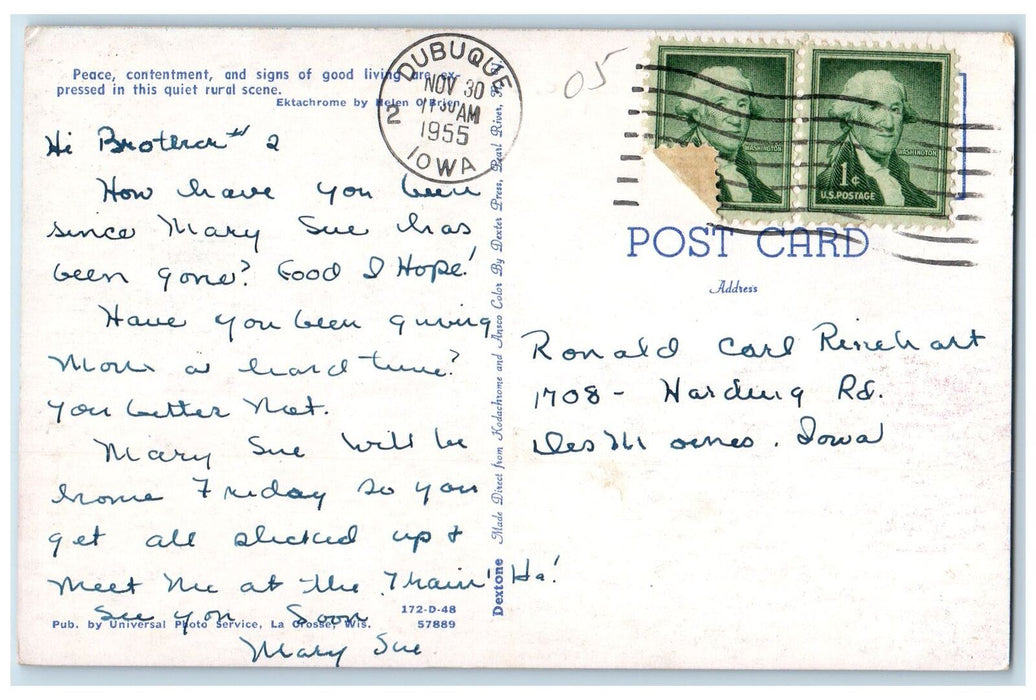 Peace, contentment, and signs of good living are ex-
pressed in this quiet rural scene.
Ektachrome by Helen O'Brien
Hi Brother #2
How have you been
since Mary Sue has
been gone? Good I Hope!
Have you been giving
Mom a hard time?
You better Not.
Mary Sue will be
home Friday so you
get all slicked up &
Meet Me at the Train! Ha!
See you Soon
Mary Sue
172-D-48
Pub. by Universal Photo Service, La Crosse, Wis. 57889
Dextone Made Direct from Kodachrome and Ansco Color By Dexter Press, Pearl River, N.Y.
DUBUQUE
NOV 30
11 30 AM
1955
2
IOWA
05
WASHINGTON
WASHINGTON
1¢
U.S. POSTAGE
POST CARD
Address
Ronald Carl Rinehart
1708 - Harding Rd.
Des Moines. Iowa